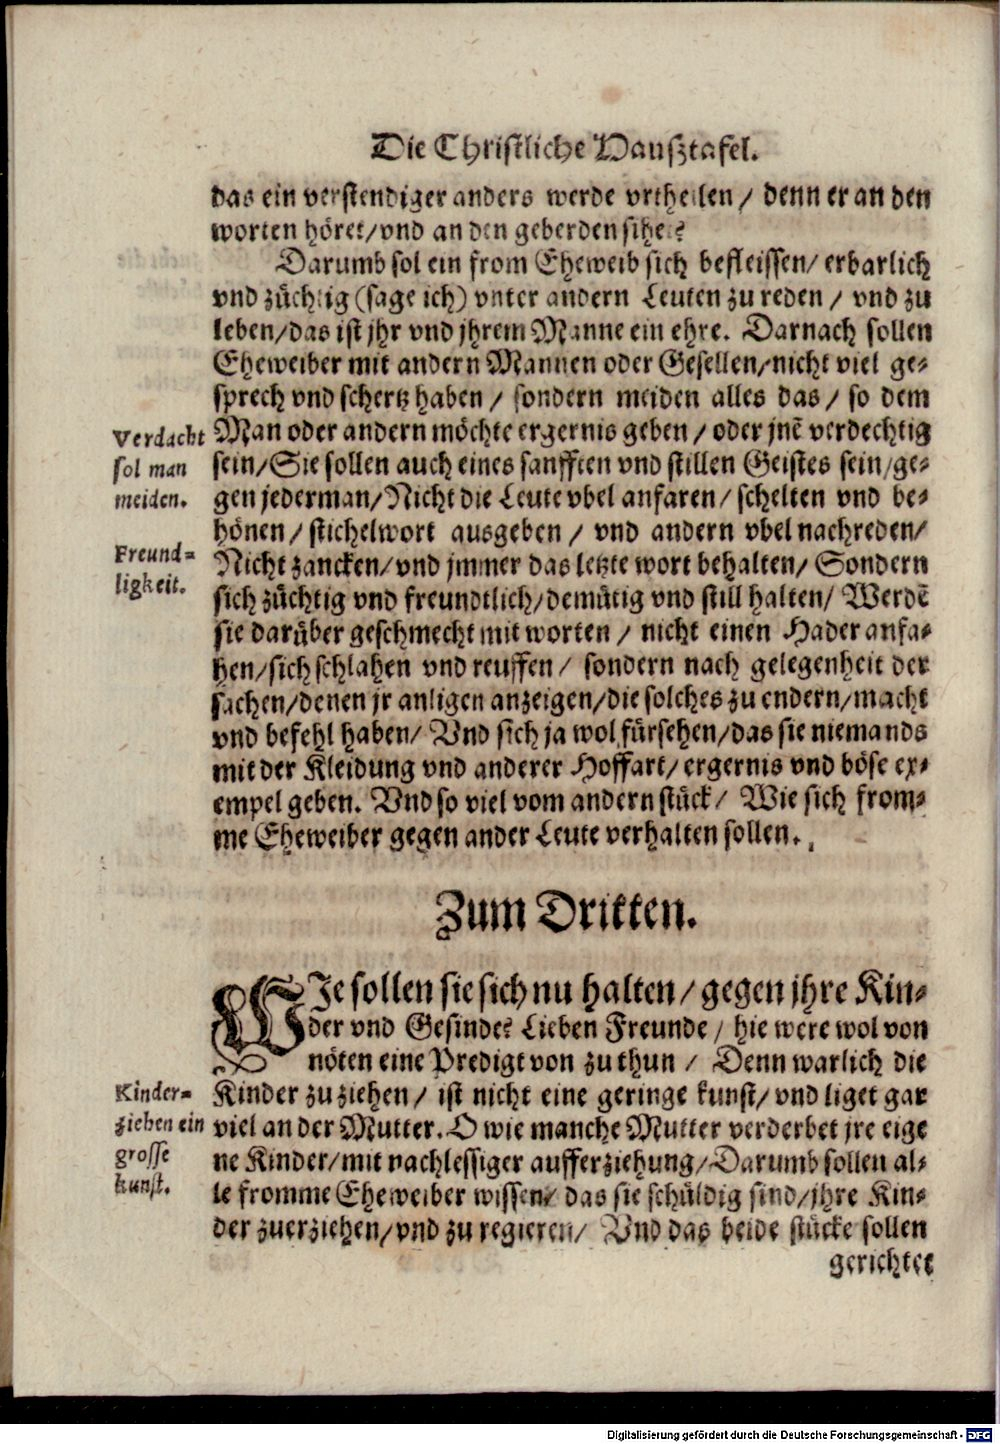 Die Christliche Haußtafel.
das ein verstendiger anders werde vrtheilen / denn er an den
worten höret/vnd an den geberden sihet?
Darumb sol ein from Eheweib sich befleissen/ erbarlich
vnd züchtig (sage ich) vnter andern Leuten zu reden / vnd zu
leben/das ist jhr vnd jhrem Manne ein ehre. Darnach sollen
Eheweiber mit andern Mannen oder Gesellen/nicht viel ge-
sprech vnd schertz haben / sondern meiden alles das / so dem
Man oder andern möchte ergernis geben / oder jnē verdechtig
sein/Sie sollen auch eines sanfften vnd stillen Geistes sein/ge-
gen jederman/Nicht die Leute vbel anfaren/ schelten vnd be-
hönen / stichelwort ausgeben / vnd andern vbel nachreden/
Nicht zancken/vnd jmmer das letzte wort behalten/ Sondern
sich züchtig vnd freundtlich/demütig vnd still halten/ Werdē
sie darüber geschmecht mit worten / nicht einen Hader anfa-
hen/sich schlahen vnd reuffen / sondern nach gelegenheit der
sachen/denen jr anligen anzeigen/die solches zu endern/macht
vnd befehl haben/ Vnd sich ja wol fürsehen/das sie niemands
mit der Kleidung vnd anderer Hoffart/ ergernis vnd böse ex-
empel geben. Vnd so viel vom andern stück/ Wie sich from-
me Eheweiber gegen ander Leute verhalten sollen.
Verdacht
sol man
meiden.
Freund-
ligkeit.
Zum Dritten.
WIe sollen sie sich nu halten / gegen jhre Kin-
der vnd Gesinde? Lieben Freunde / hie were wol von
nöten eine Predigt von zu thun / Denn warlich die
Kinder zu ziehen / ist nicht eine geringe kunst/ vnd liget gar
viel an der Mutter. O wie manche Mutter verderbet jre eige
ne Kinder/mit nachlessiger aufferziehung/Darumb sollen al-
le fromme Eheweiber wissen/ das sie schüldig sind/jhre Kin-
der zuerziehen/vnd zu regieren/ Vnd das beide stücke sollen
gerichtet
Kinder-
ziehen ein
grosse
kunst.
Digitalisierung gefördert durch die Deutsche Forschungsgemeinschaft - DFG